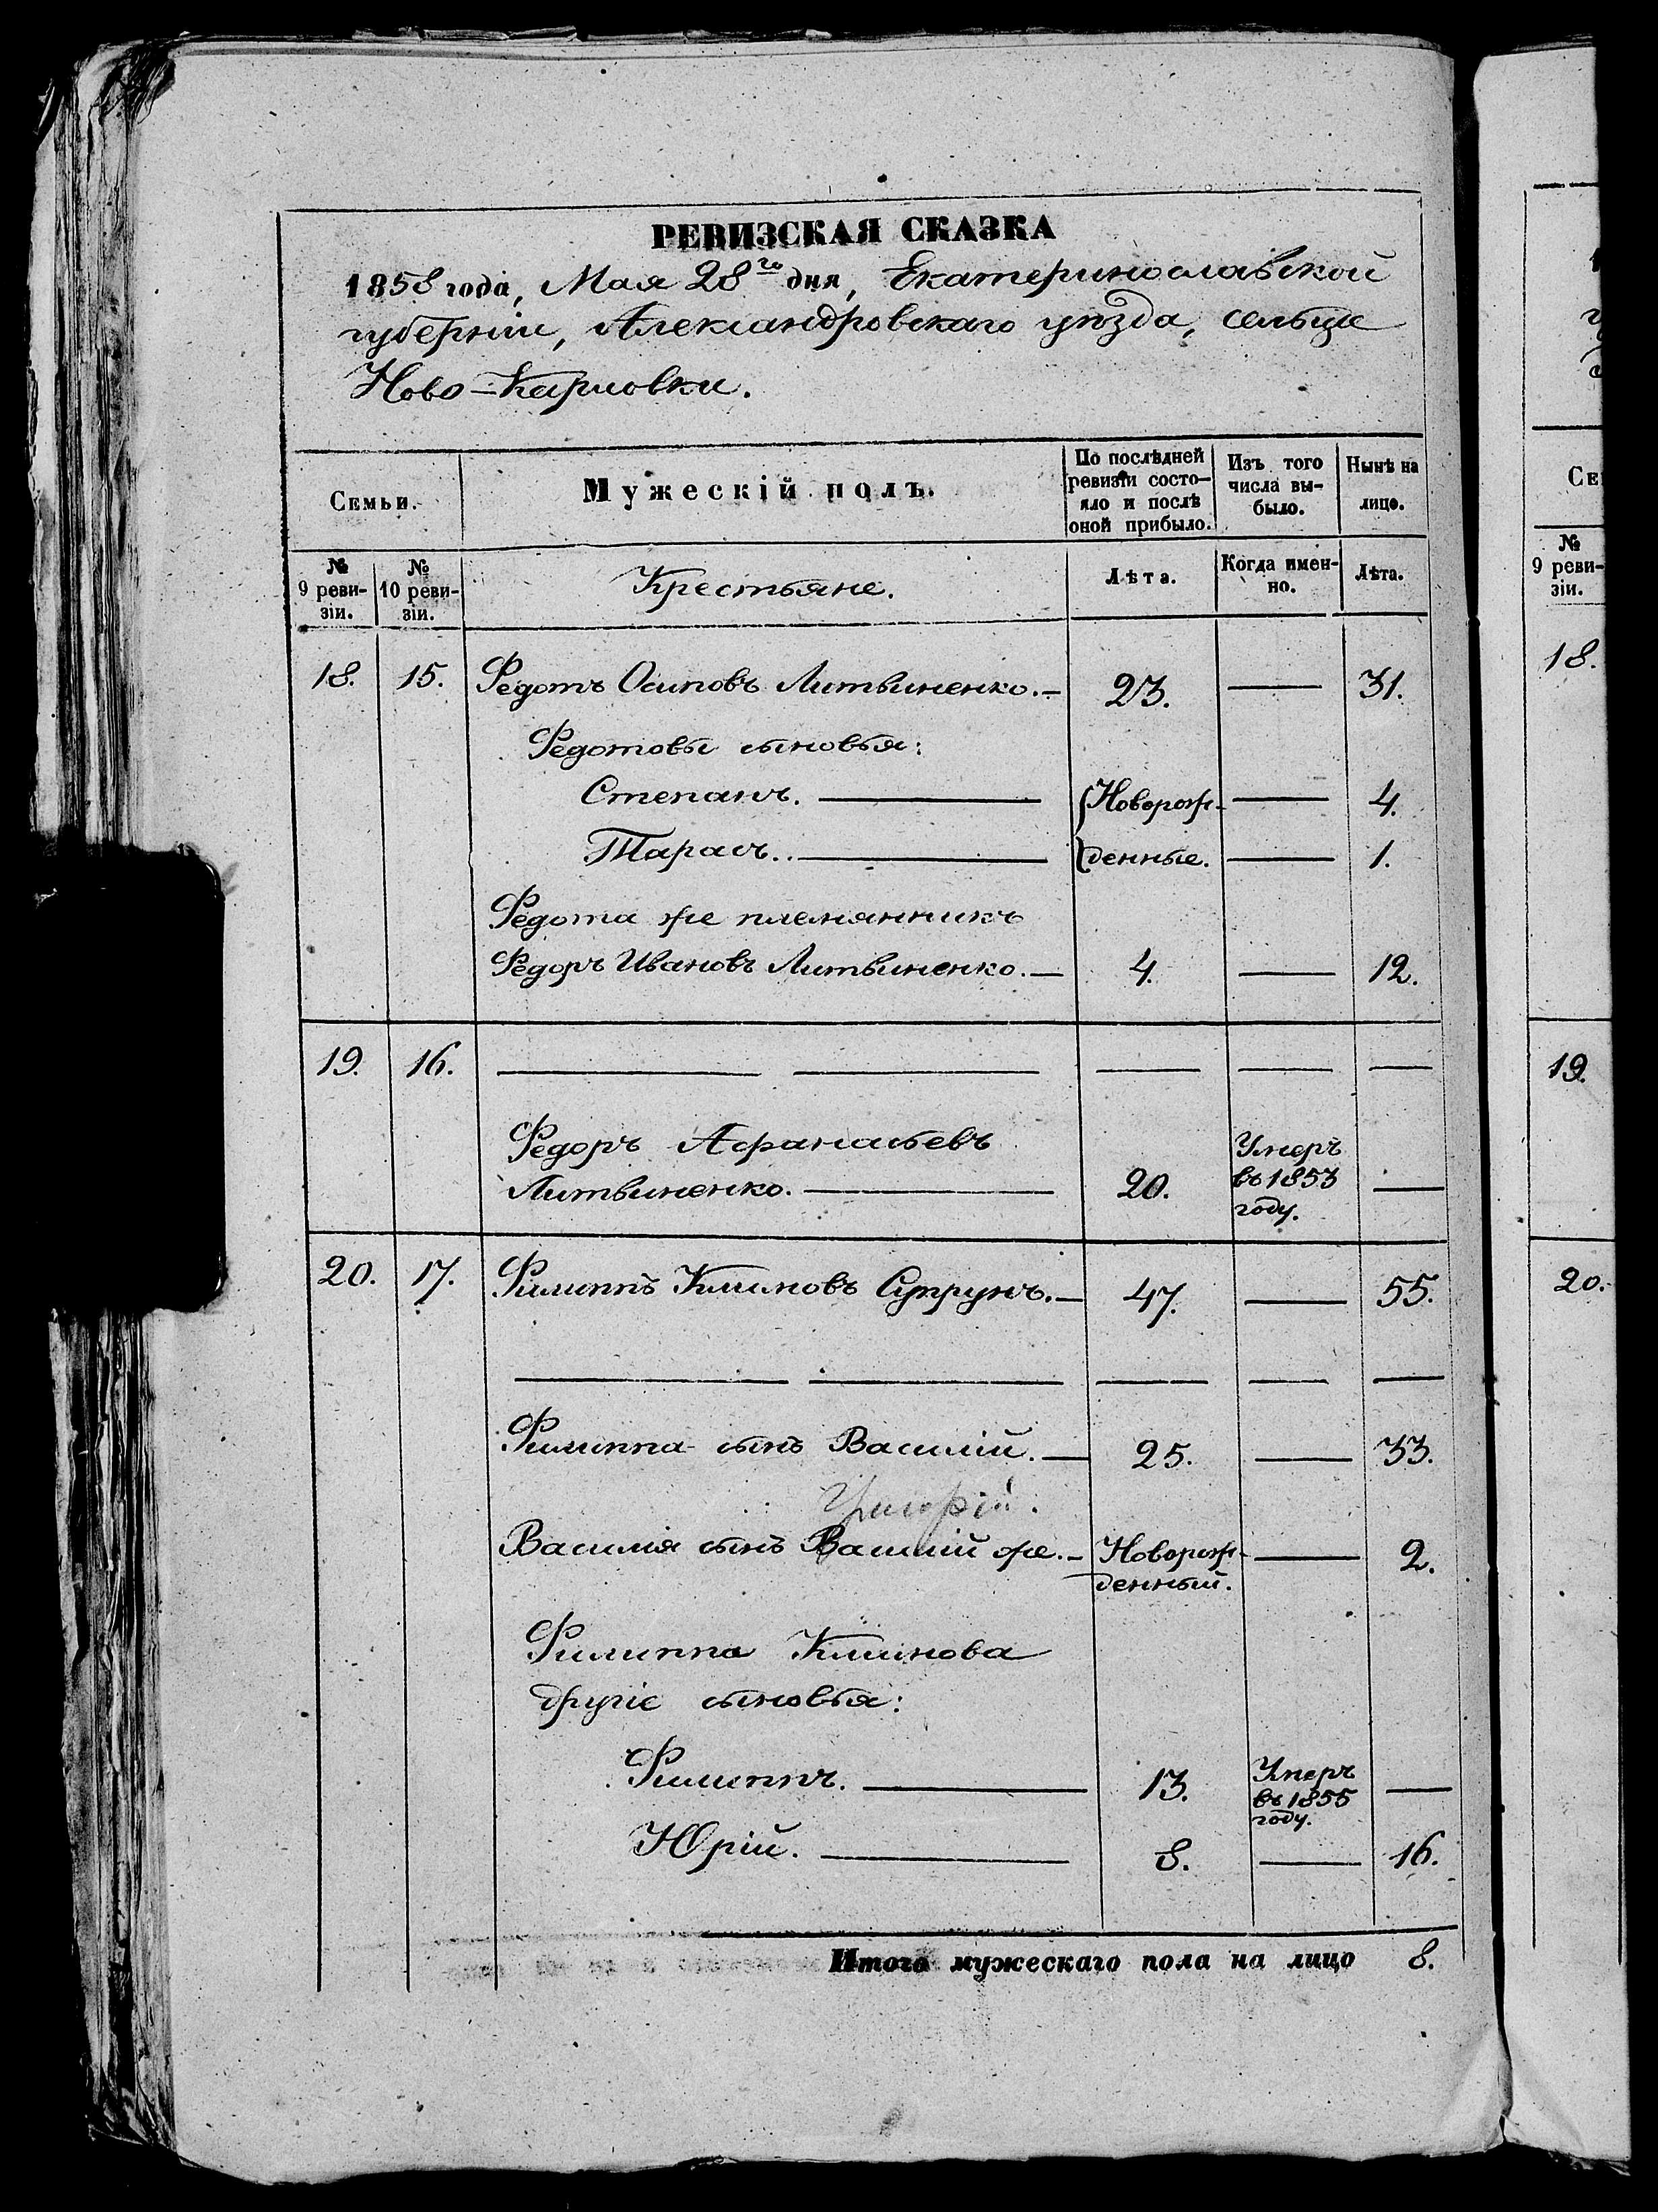 РЕВИЗСКАЯ СКАЗКА
1858 года, Мая 28го дня, Екатеринославской
губерніи, Александровскаго уѣзда, сельце
Ново-Карловки.
Семьи.
Мужескій полъ.
По послѣдней
ревизіи состо-
яло и послѣ
оной прибыло.
Изъ того
числа вы-
было.
Нынѣ на
лицо.
№
9 реви-
зіи.
№
10 реви-
зіи.
Крестьяне.
Лѣта.
Когда имен-
но.
Лѣта.
18. 15. Федотъ Осиповъ Литвиненко.— 23. — 31.
Федотовы сыновья:
Степанъ. — Новорож- — 4.
Тарасъ. — денные. — 1.
Федота же племянникъ
Федоръ Ивановъ Литвиненко.— 4. — 12.
19. 16. — — — — —
Федоръ Афанасьевъ
Литвиненко. — 20. Умеръ
въ 1853
году. —
20. 17. Филиппъ Климовъ Супрунъ.— 47. — 55.
— — — — —
Филиппа сынъ Василій.— 25. — 33.
Василія сынъ Василій же.— Новорож-
денный. — 2.
Филиппа Климова
другіе сыновья:
Филиппъ. — 13. Умеръ
въ 1855
году. —
Юрій. — 8. — 16.
Итого мужескаго пола на лицо 8.
СЕ
№
9 реви-
зіи.
18.
19.
20.